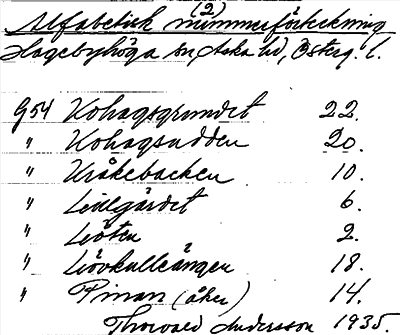 (2)
Alfabetisk nummerförteckning
Hagebyhöga sn, Aska hd, Österg. l.
954 Kohagsgrundet 22.
" Kohagsudden 20.
" Kråkebacken 10.
" Lillgärdet 6.
" Liöten 2.
" Lövkulleängen 18.
" Pinan (åker) 14.
Thorvald Andersson 1935.